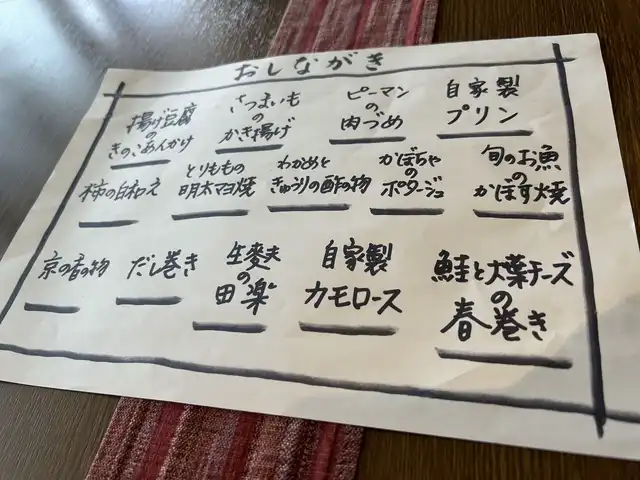 おしながき
揚げ豆腐
の
きのこあんかけ
さつまいも
の
かき揚げ
ピーマン
の
肉づめ
自家製
プリン
柿の白和え
とりももの
明太マヨ焼
わかめと
きゅうりの酢の物
かぼちゃ
の
ポタージュ
旬のお魚
の
かぼす焼
京の香の物
だし巻き
生麩
の
田楽
自家製
カモロース
鮭と大葉チーズ
の
春巻き